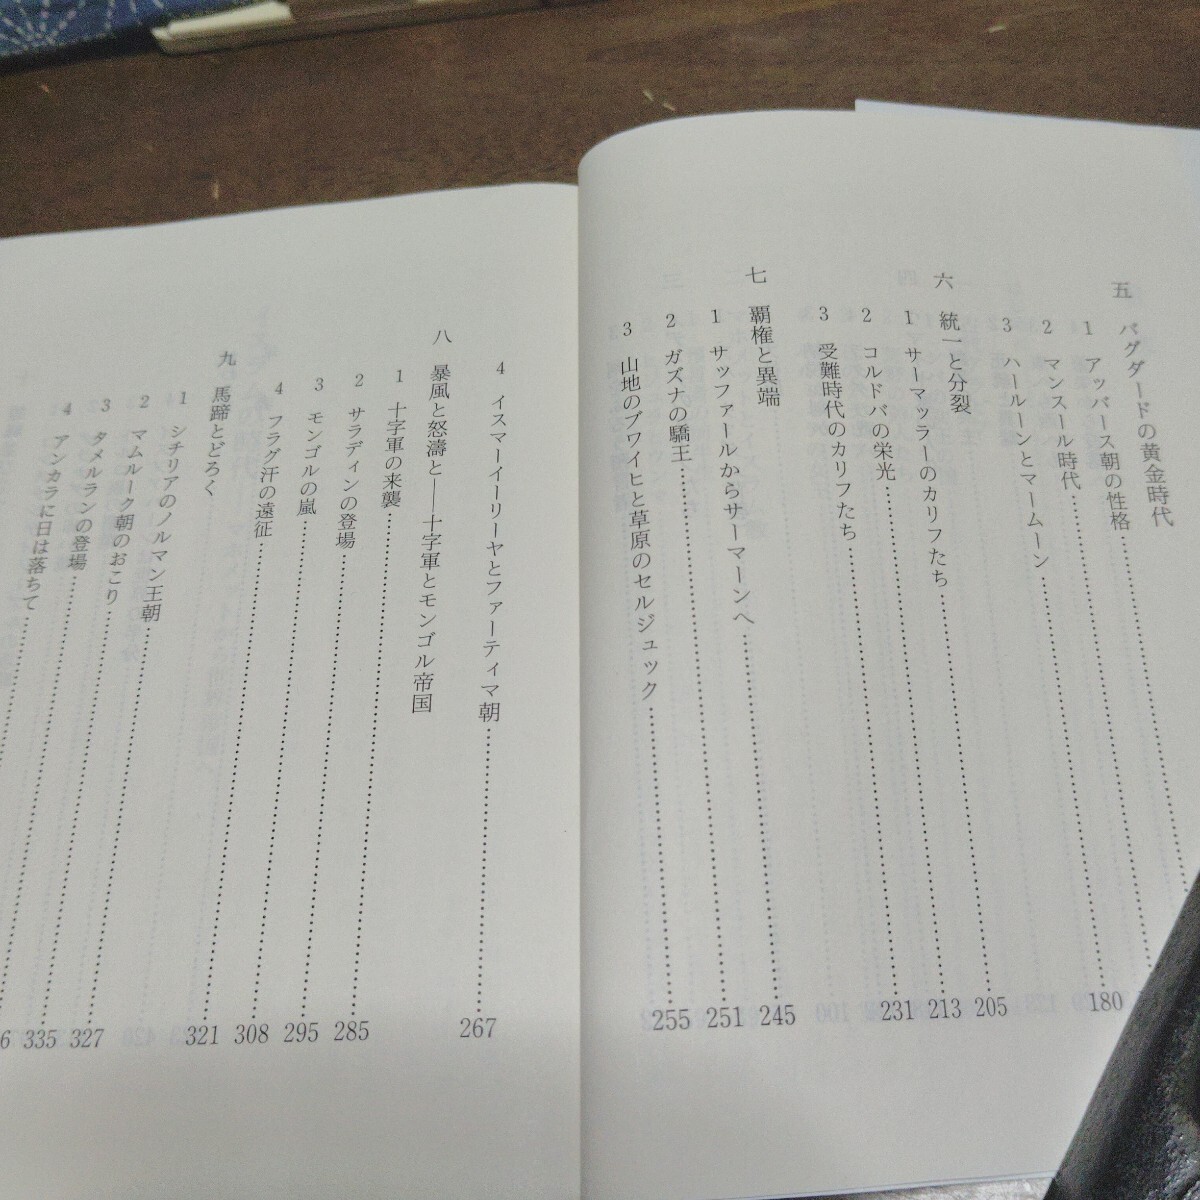 五 バグダードの黄金時代
1 アッバース朝の性格
2 マンスール時代
3 ハールーンとマームーン 180
六 統一と分裂
1 サーマッラーのカリフたち 205
2 コルドバの栄光 213
3 受難時代のカリフたち 231
七 覇権と異端
1 サッファールからサーマーンへ 245
2 ガズナの驕王 251
3 山地のブワイヒと草原のセルジュック 255
4 イスマーイーリーヤとファーティマ朝 267
八 暴風と怒濤と──十字軍とモンゴル帝国
1 十字軍の来襲 285
2 サラディンの登場 295
3 モンゴルの嵐 308
4 フラグ汗の遠征 321
九 馬蹄とどろく
1 シチリアのノルマン王朝 327
2 マムルーク朝のおこり 335
3 タメルランの登場 6
4 アンカラに日は落ちて